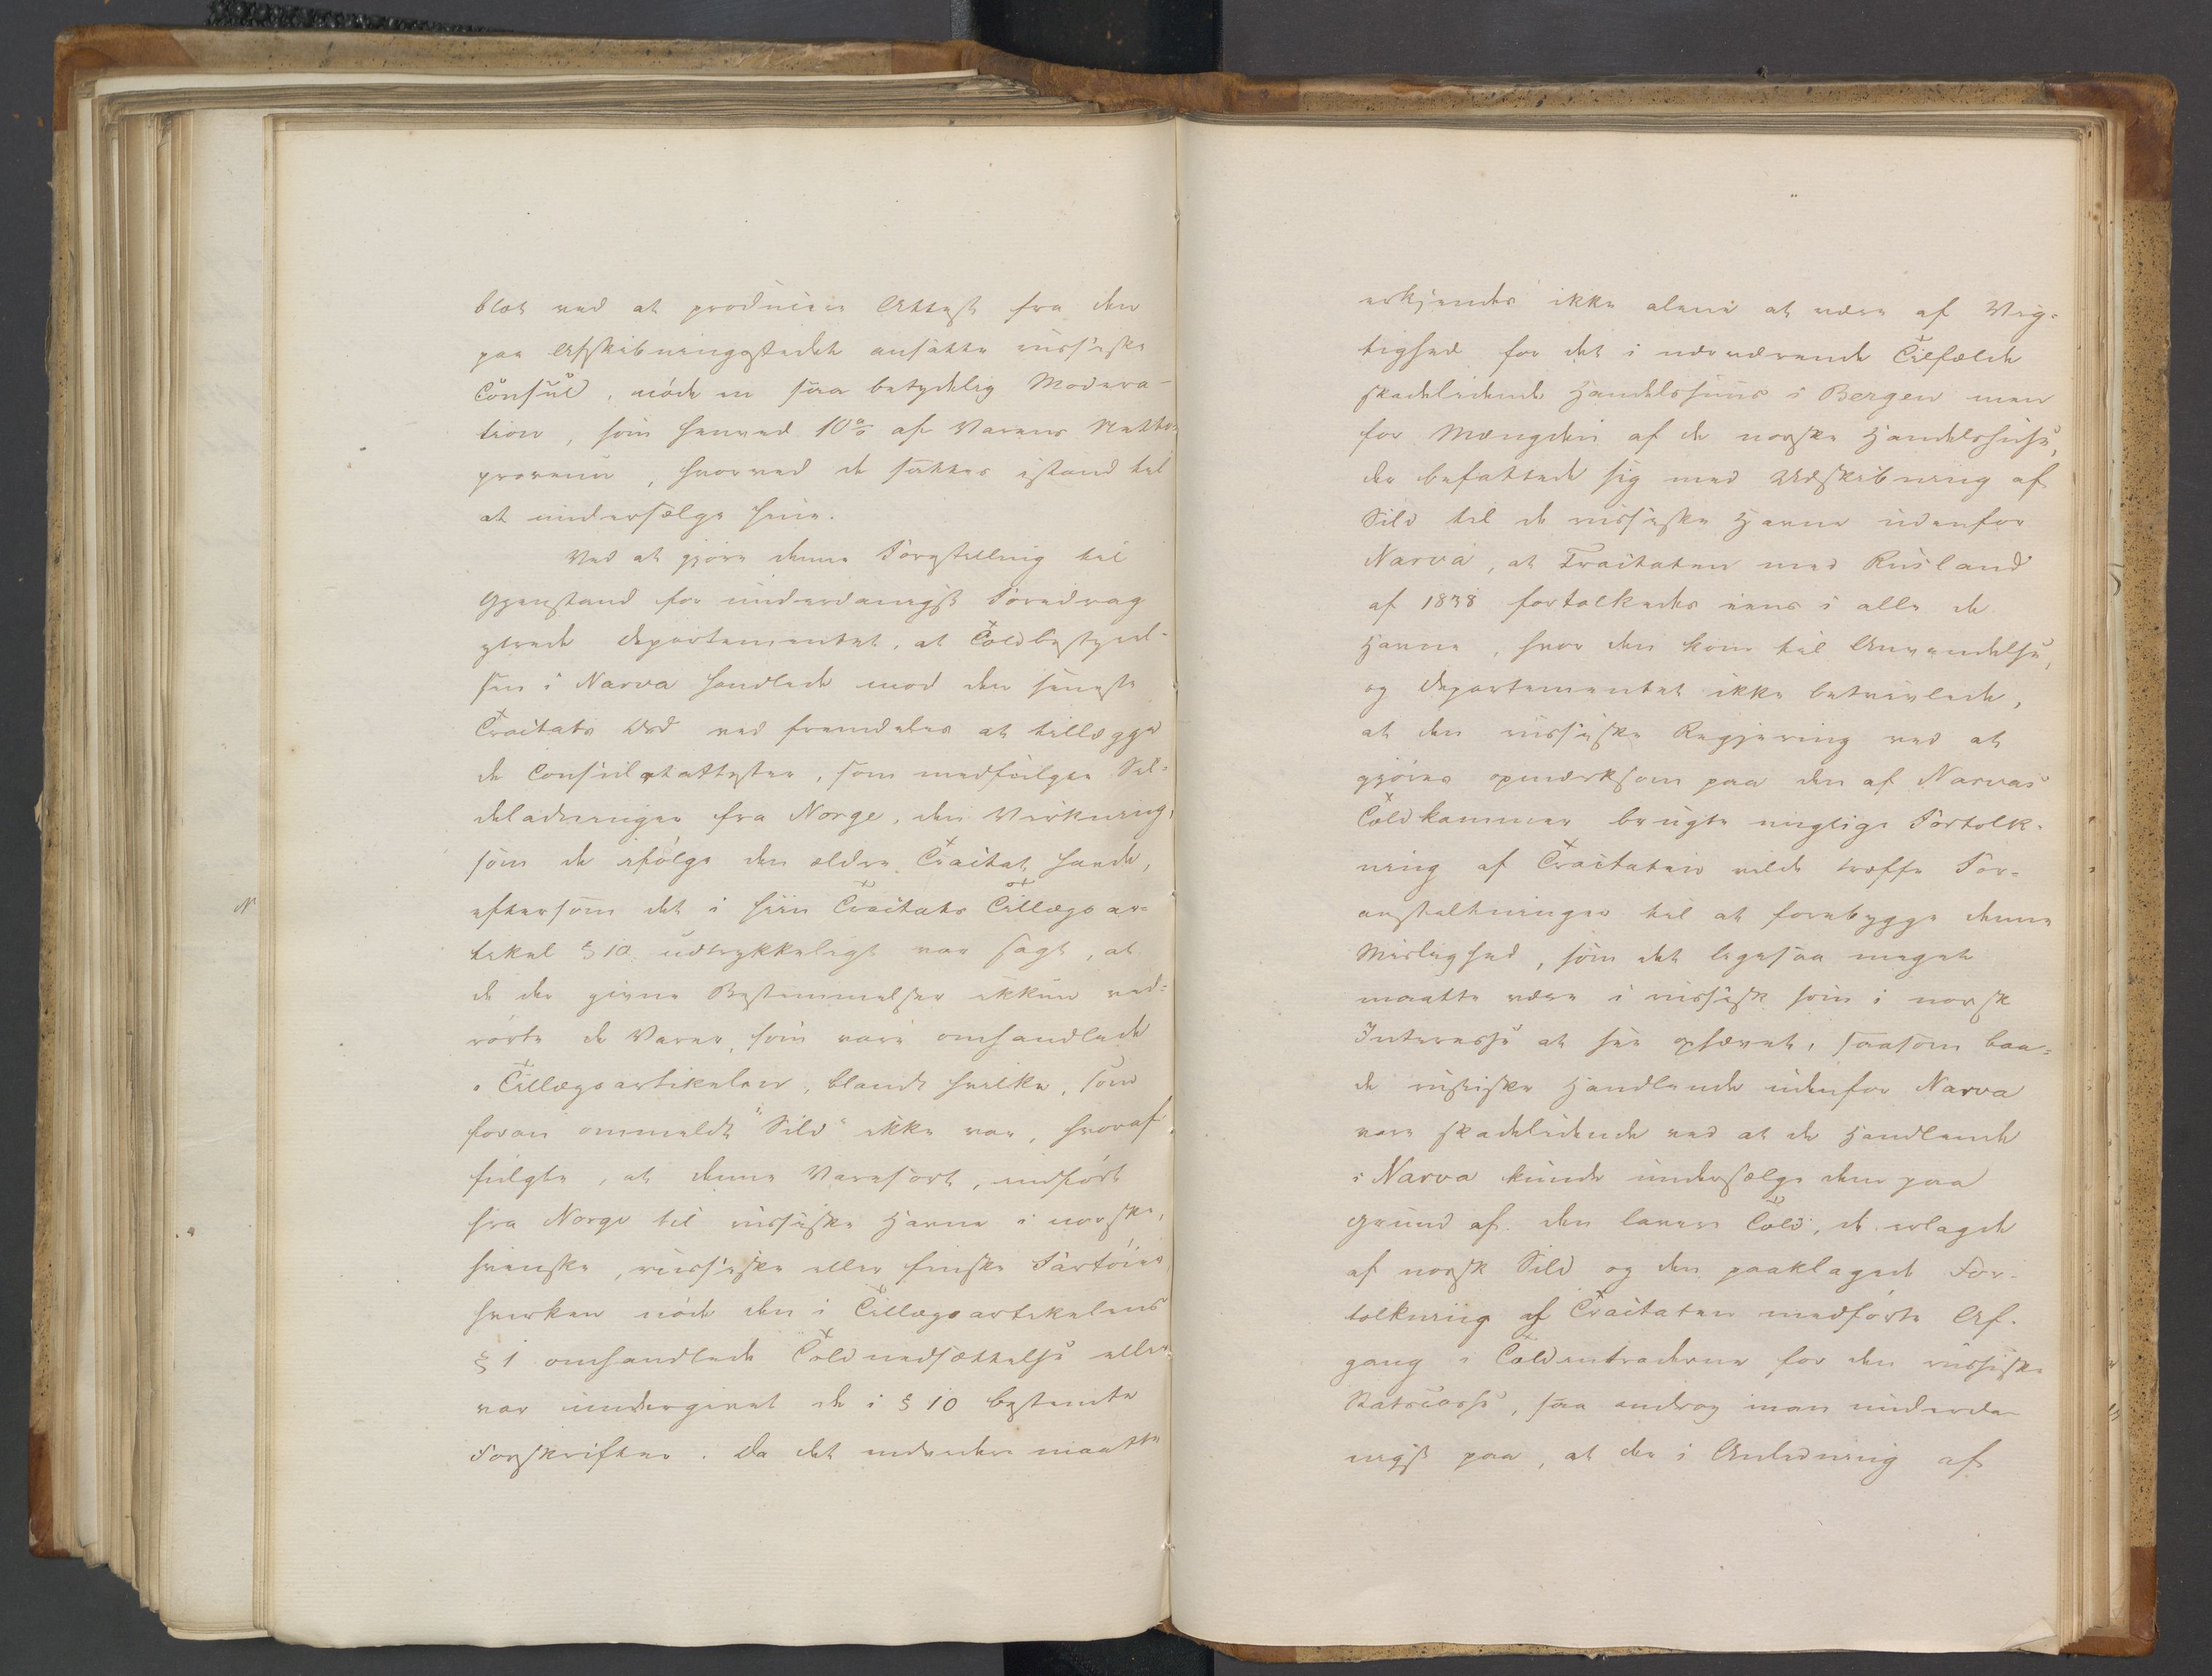 blot ved at producere Attest fra den
paa Afskibningsstedet ansatte russiske
Consul, nöde en saa betydelig Modera-
tion, som henved 10% af Varens Netto-
provenu, hvorved de sattes istand til
at undersælge hine.
Ved at gjöre denne Forestilling til
Gjenstand for underdanigst Foredrag
ytrede Departementet, at Toldbestyrel-
sen i Narva handlede mod den seneste
Tractats Ord ved fremdeles at tillægge
de Consulatattester, som medfölger Sil-
deladninger fra Norge, den Virkning,
som de ifölge den ældre Tractat havde,
eftersom det i hiin Tractats Tillægsar-
tikel § 10 udtrykkeligt var sagt, at
de der givne Bestemmelser ikkun ved-
rörte de Varer, som vare omhandlede
i Tillægsartikelen, blandt hvilke, som
foran ommeldt "Sild" ikke var, hvoraf
fulgte, at denne Varesort, indfört
fra Norge til russiske Havne i norske,
svenske, russiske eller finske Fartöier
hverken nöd den i Tillægsartikelens
§ 1 omhandlede Toldnedsættelse eller
var undergivet de i § 10 bestemte
Forskrifter. Da det endvidere maatte
erkjendes ikke alene at være af Vig-
tighed for det i nærværende Tilfælde
skadelidende Handelshuus i Bergen men
for Mængden af de norske Handelshuse,
der befattede sig med Udskibning af
Sild til de russiske Havne udenfor
Narva, at Tractaten med Rusland
af 1838 fortolkedes eens i alle de
Havne, hvor den kom til Anvendelse,
og Departementet ikke betvivlede,
at den russiske Regjering ved at
gjöres opmærksom paa den af Narvas
Toldkammer brugte urigtige Fortolk-
ning af Tractaten vilde træffe For-
anstaltninger til at forebygge denne
Mislighed, som det ligesaa meget
maatte være i russisk som i norsk
Interesse at see ophævet, saasom baa-
de russiske Handlende udenfor Narva
vare skadelidende ved at de Handlende
i Narva kunde undersælge dem paa
Grund af den lavere Told, de erlagde
af norsk Sild og den paaklagede For-
tolkning af Tractaten medförte Af-
gang i Toldintraderne for den russiske
Statscasse, saa androg man underda-
nigst paa, at der i Anledning af